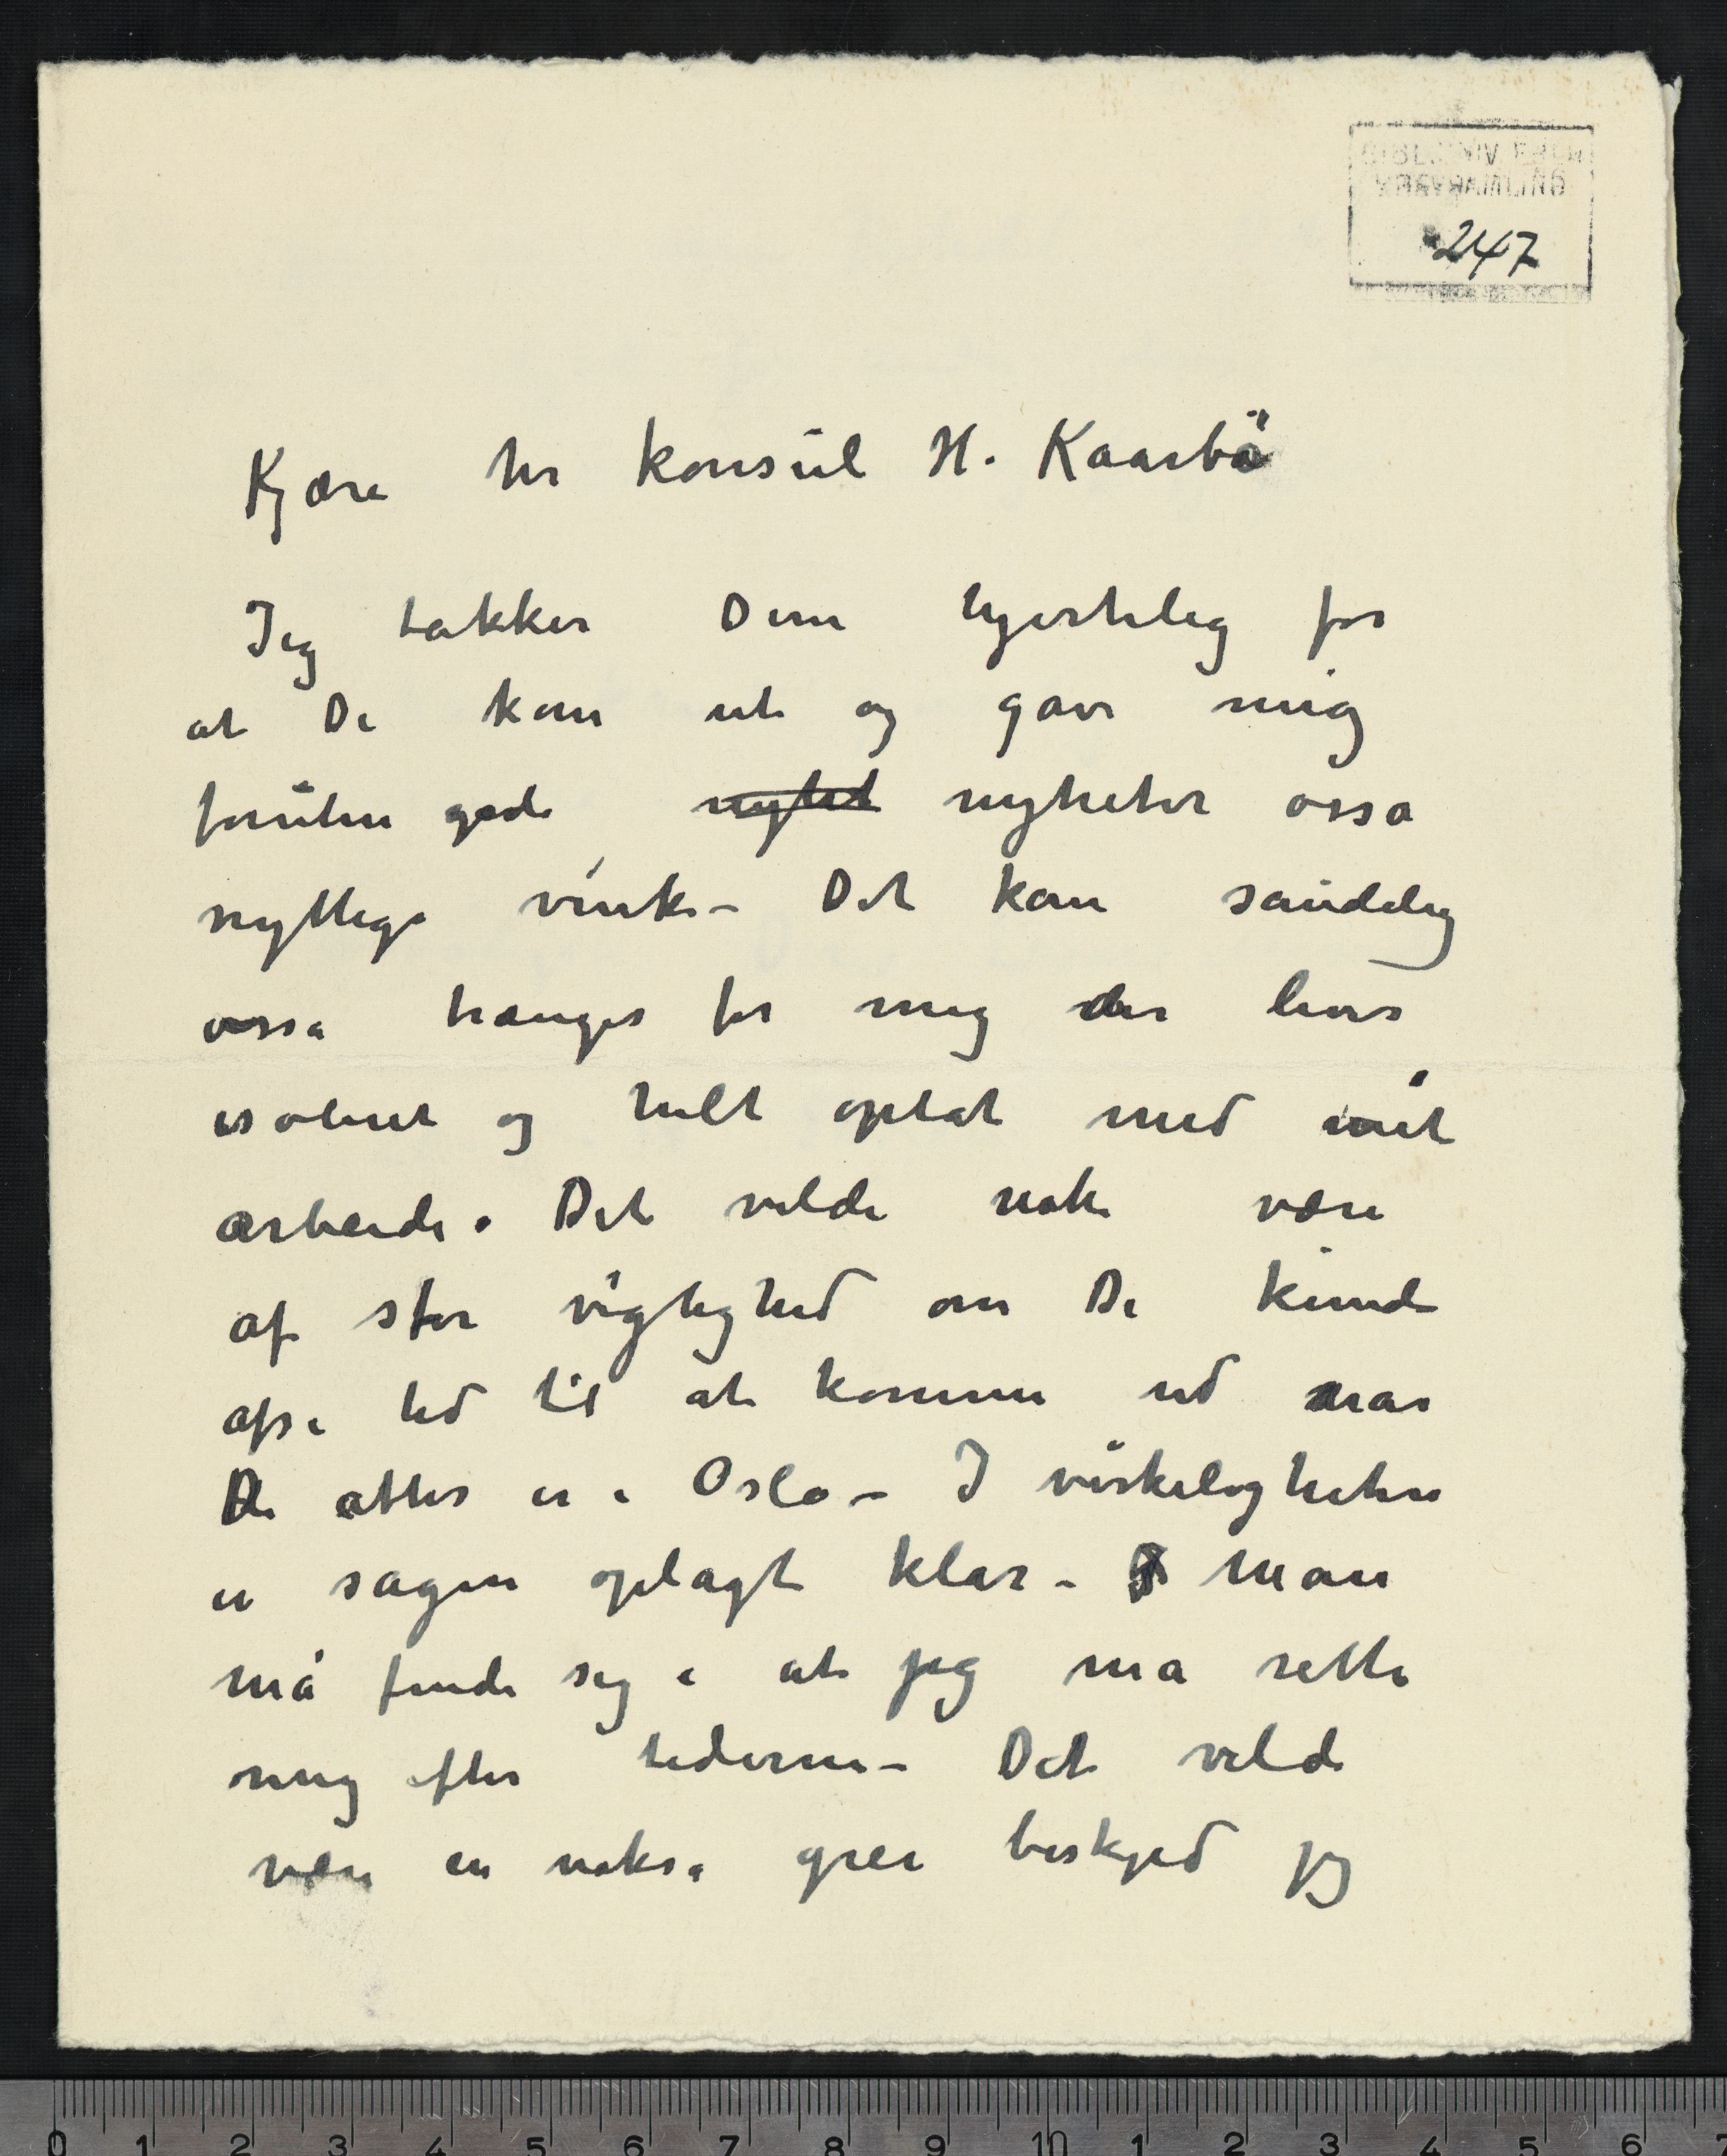 247
Kjære hr konsul H. Kaarbö
Jeg takker Dem hjertelig for
at De kom ut og gav mig
foruten gode nyhed nyheter ossa
nyttige vink – Det kan sandelig
ossa trænges for mig der lever
isoleret og helt optat med mit
arbeide. Det vilde nok være
af stor vigtighed om De kunde
afse tid til at komme ud naar
De atter er i Oslo – I virkeligheten
er sagen oplagt klar – Man
må finde sig i at jeg ma rette
mig efter tiderne – Det vilde
være en nokså grei beskjed jeg